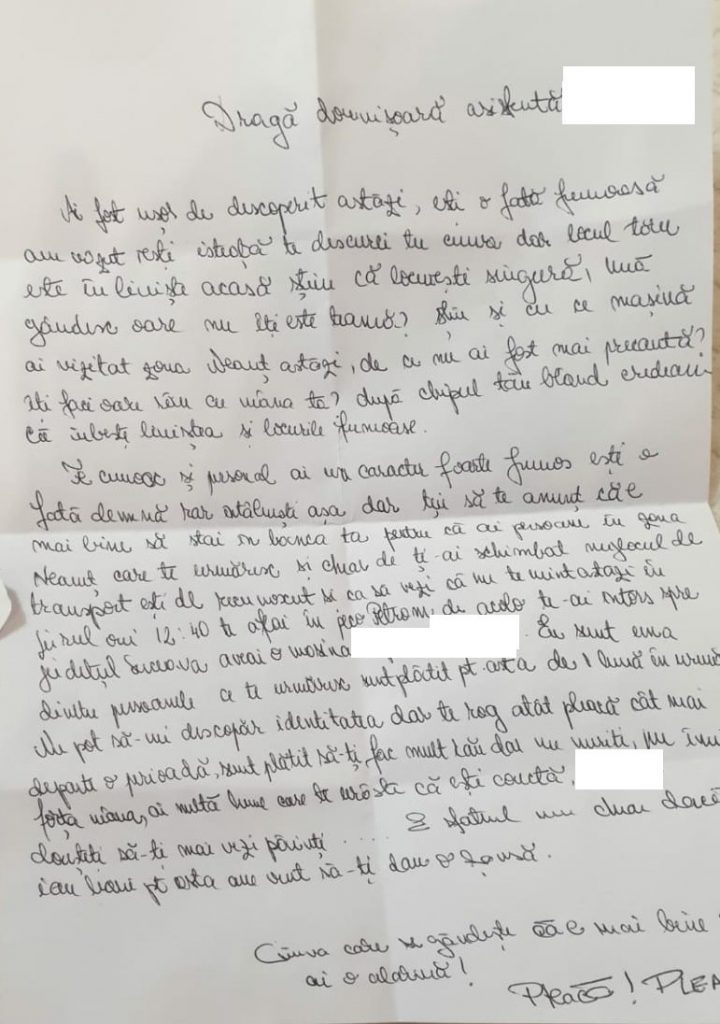 Dragă domnișoară asistentă
Ai fost ușor de descoperit astăzi, ești o fată frumoasă
am văzut ești isteață te descurci tu cumva dar locul tău
este în liniște acasă știu că locuiești singură, mă
gândesc oare nu îți este teamă? știu și cu ce mașină
ai vizitat zona Neamț astăzi, de ce nu ai fost mai precaută?
îți faci oare rău cu mâna ta? după chipul tău blând credeam
că iubești liniștea și locurile frumoase.
Te cunosc și personal ai un caracter foarte frumos ești o
fată demnă rar întâlnești așa dar țin să te anunț că e
mai bine să stai în banca ta pentru că ai persoane în zona
Neamț care te urmăresc și chiar de ți-ai schimbat mijlocul de
transport ești de recunoscut si ca sa vezi că nu te mint astăzi în
jurul orei 12:40 te aflai în peco Petrom, de acolo te-ai intors spre
județul Suceava aveai o masina Eu sunt una
dintre persoanele ce te urmăresc sunt plătit pt. asta de 1 lună în urmă
Nu pot să-mi descopăr identitatea dar te rog atât pleacă cât mai
departe o perioadă, sunt plătit să-ți fac mult rău dar nu meriti, nu îmi
forța mâna, ai multă lume care te urăște că ești corectă,
E sfatul meu chiar dacă
dorești să-ți mai vezi părinții ....
iau bani pt asta am vrut să-ți dau o șansă.
Cineva care se gândește că e mai bine
ai o alarmă!
Pleacă! PLEA